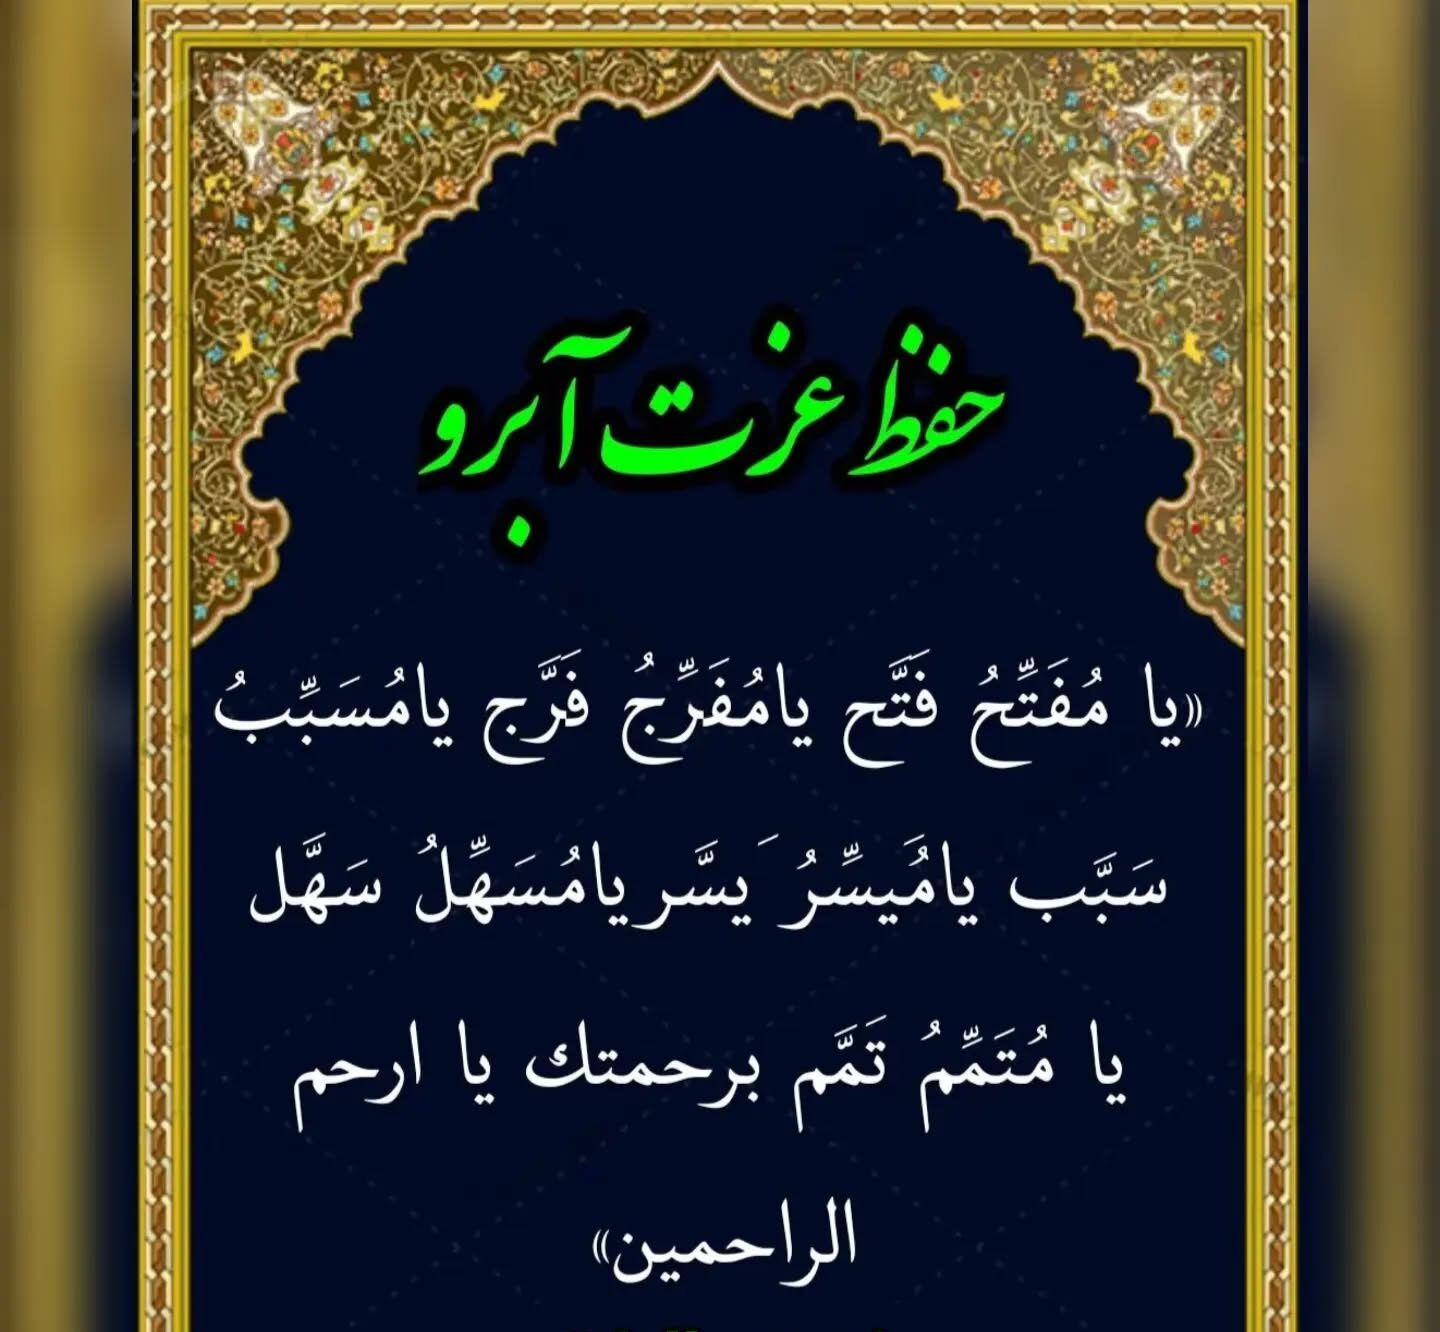 حفظ عزت آبرو
«یا مُفَتِّحُ فَتَّح یامُفَرِّجُ فَرَّج یامُسَبِّبُ
سَبَّب یامُیَسِّرُ یَسَّر یامُسَهِّلُ سَهَّل
یا مُتَمِّمُ تَمَّم برحمتك یا ارحم
الراحمین»